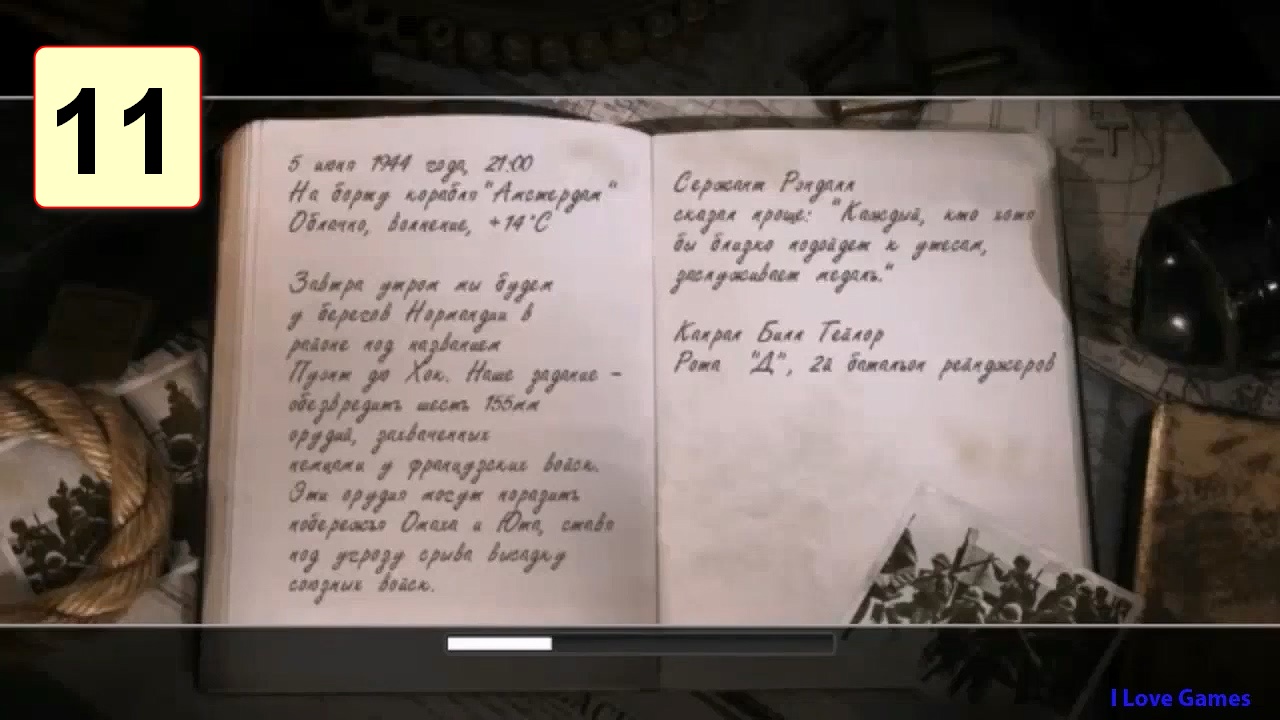 11
5 июня 1944 года, 21:00
На борту корабля "Амстердам"
Облачно, волнение, +14°C
Завтра утром мы будем
у берегов Нормандии в
районе под названием
Пуэнт дю Хок. Наше задание -
обезвредить шесть 155мм
орудий, захваченных
немцами у французских войск.
Эти орудия могут поразить
побережья Омаха и Юта, ставя
под угрозу срыва высадку
союзных войск.
Сержант Рэндалл
сказал проще: "Каждый, кто хотя
бы близко подойдет к утесам,
заслуживает медаль."
Капрал Билл Тейлор
Рота "Д", 2й батальон рейнджеров
I Love Games